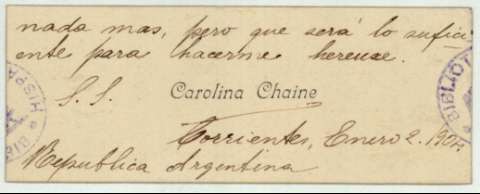 nada mas, pero que será lo sufici
ente para hacerme
S. S. Carolina Chaine
Corrientes, Enero 2. 1904.
Republica Argentina
HISPA
BIB
BIBLIOT